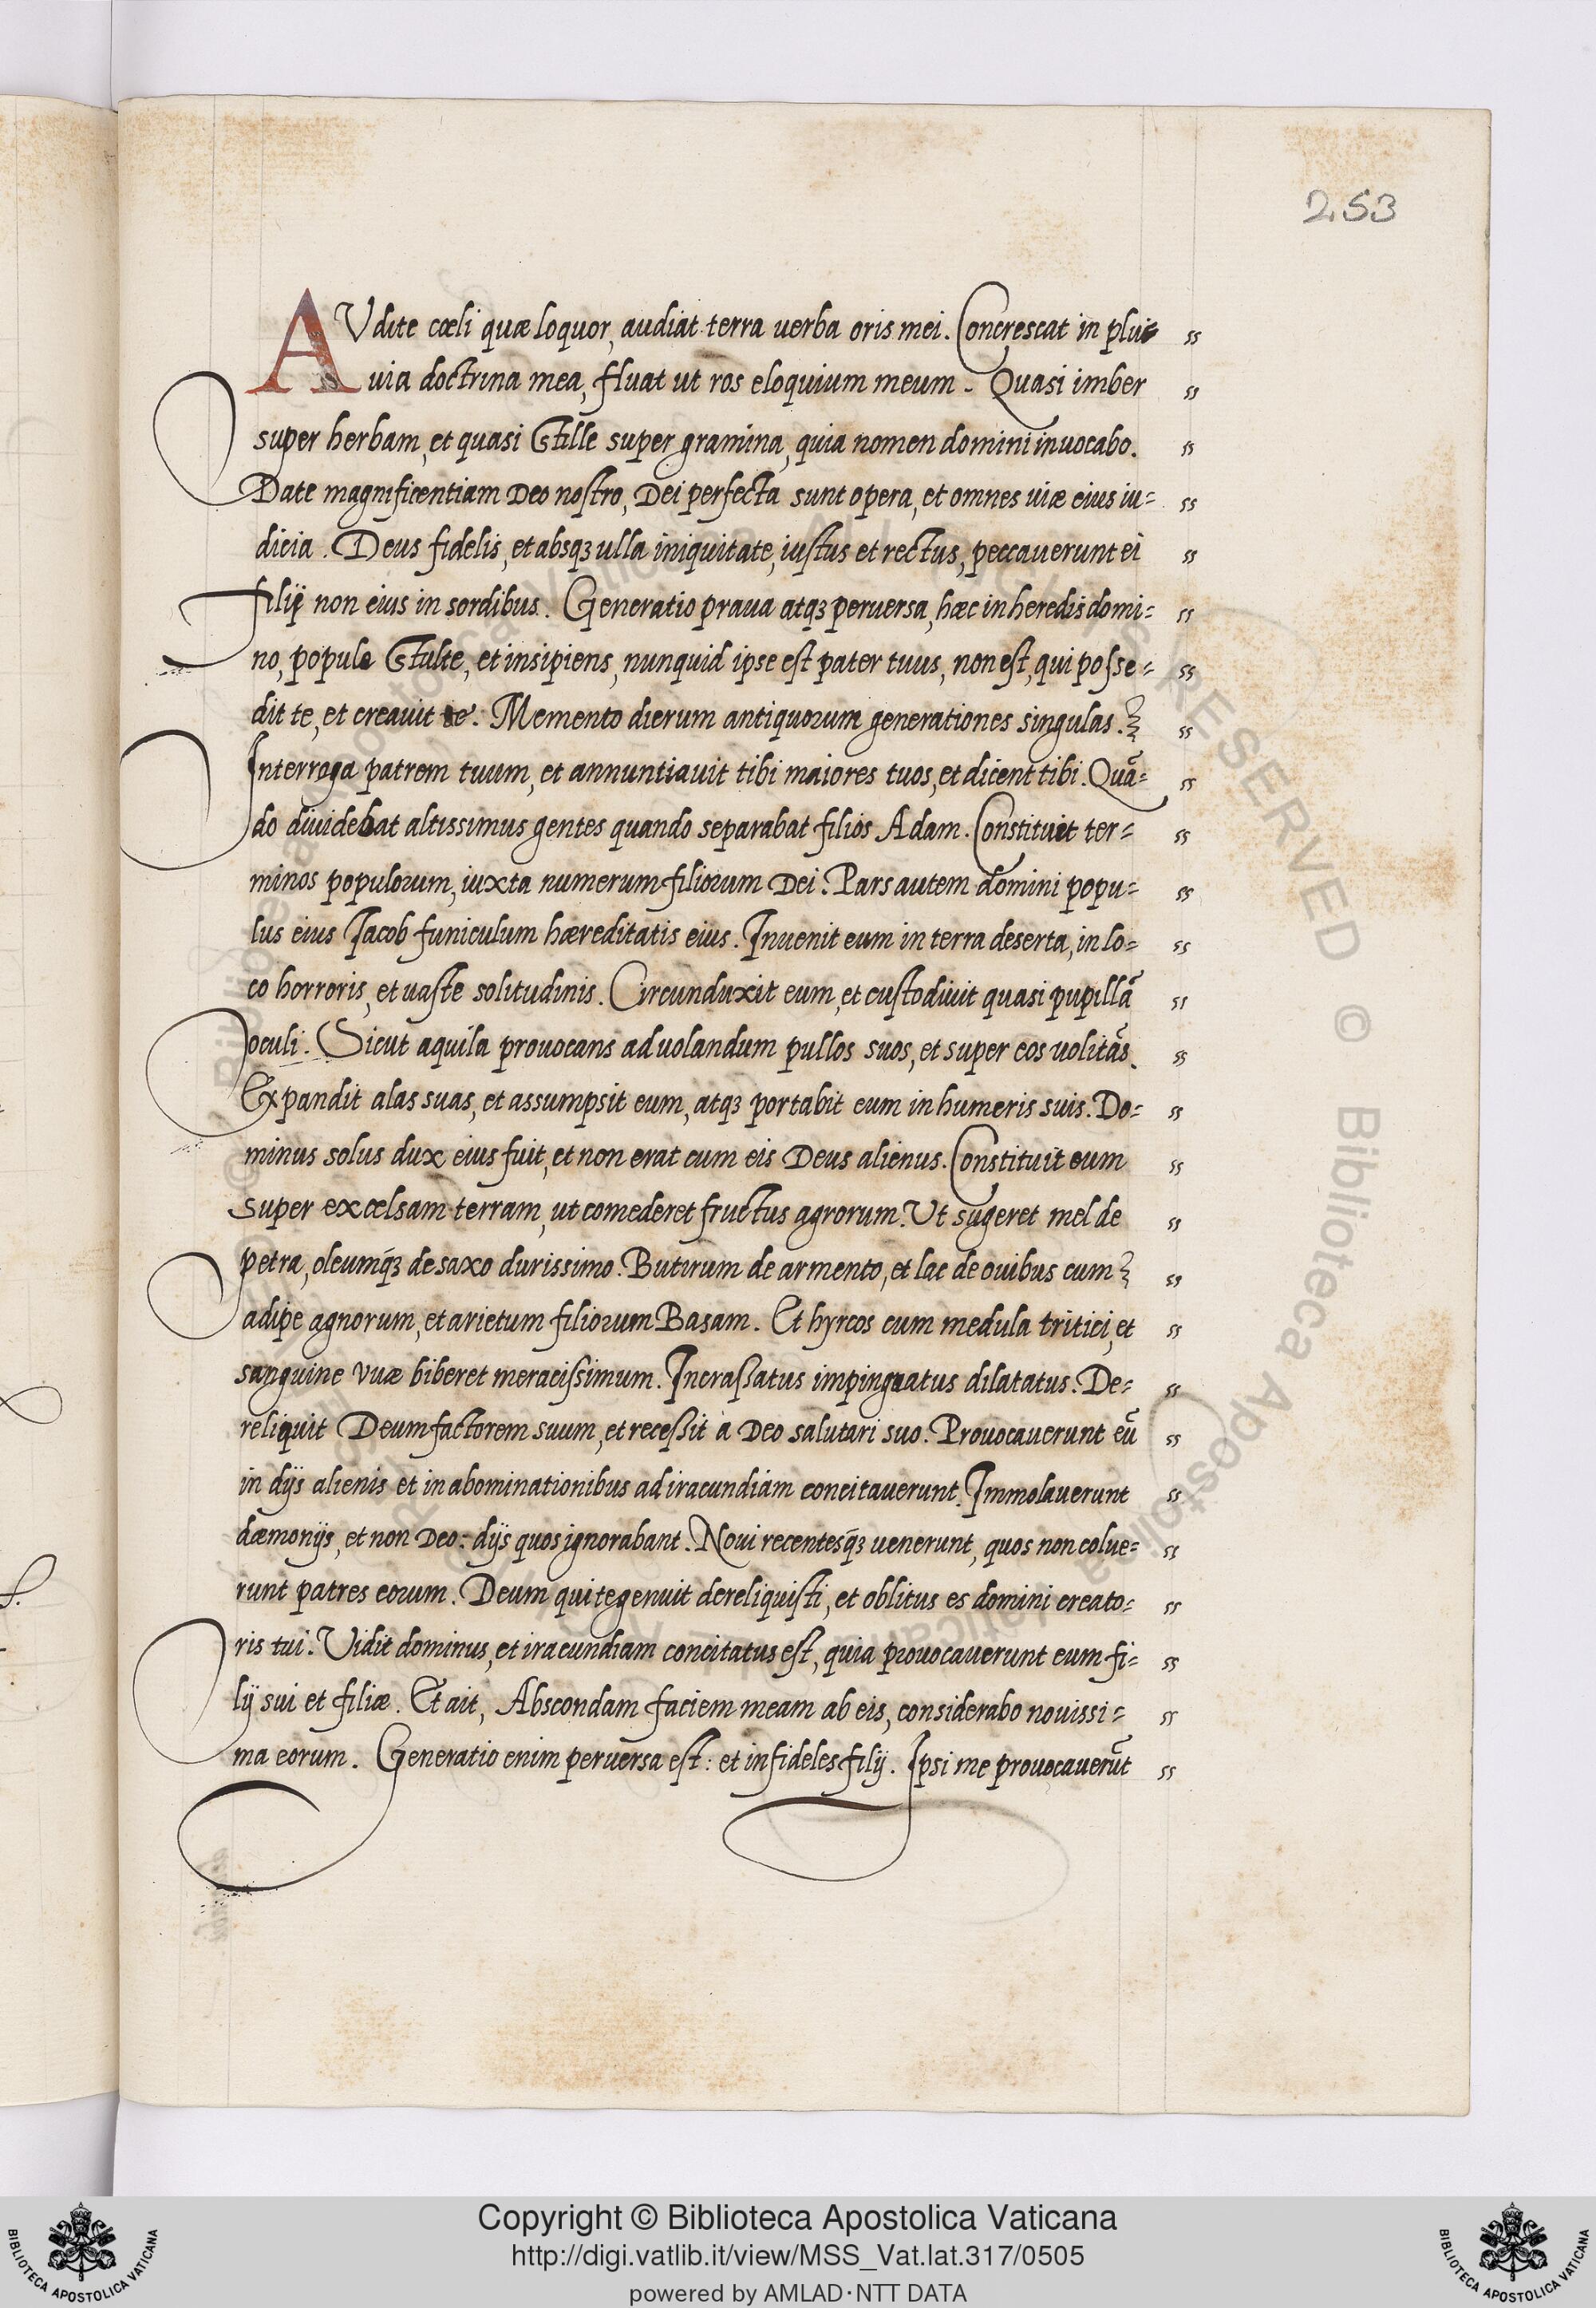 253
AVdite cœli quæ loquor, audiat terra uerba oris mei. Concrescat in plui
uia doctrina mea, fluat ut ros eloquium meum. Quasi imber
super herbam, et quasi stille super gramina, quia nomen domini inuocabo.
Date magnificentiam Deo nostro, Dei perfecta sunt opera, et omnes uiæ eius iu=
dicia. Deus fidelis, et absqꝫ ulla iniquitate, iustus et rectus, peccauerunt ei
filij non eius in sordibus. Generatio praua atqꝫ peruersa, hæc in heredis domi=
no, popule stulte, et insipiens, nunquid ipse est pater tuus, non est, qui posse=
dit te, et creauit te. Memento dierum antiquorum generationes singulas.
Interroga patrem tuum, et annuntiauit tibi maiores tuos, et dicent tibi. Quã=
do diuidebat altissimus gentes quando separabat filios Adam. Constituit ter=
minos populorum, iuxta numerum filiorum Dei. Pars autem domini popu=
lus eius Iacob funiculum hæreditatis eius. Inuenit eum in terra deserta, in lo=
co horroris, et uaste solitudinis. Circunduxit eum, et custodiuit quasi pupillã
oculi. Sicut aquila prouocans ad uolandum pullos suos, et super eos uolitãs.
Expandit alas suas, et assumpsit eum, atqꝫ portabit eum in humeris suis. Do=
minus solus dux eius fuit, et non erat cum eis Deus alienus. Constituit eum
super excælsam terram, ut comederet fructus agrorum. Ut sugeret mel de
petra, oleumqꝫ de saxo durissimo. Butirum de armento, et lac de ouibus cum
adipe agnorum, et arietum filiorum Basam. Et hyrcos cum medula tritici, et
sanguine vuæ biberet meracissimum. Incraßatus impinguatus dilatatus. De=
reliquit Deum factorem suum, et receßit à Deo salutari suo. Prouocauerunt eũ
in dijs alienis et in abominationibus ad iracundiam concitauerunt. Immolauerunt
dæmonijs, et non Deo: dijs quos ignorabant. Noui recentesqꝫ uenerunt, quos non colue=
runt patres eorum. Deum qui te genuit dereliquisti, et oblitus es domini creato=
ris tui. Vidit dominus, et iracundiam concitatus est, quia prouocauerunt eum fi=
lij sui et filiæ. Et ait, Abscondam faciem meam ab eis, considerabo nouissi=
ma eorum. Generatio enim peruersa est: et infideles filij. Ipsi me prouocauerũt
Copyright © Biblioteca Apostolica Vaticana
http://digi.vatlib.it/view/MSS_Vat.lat.317/0505
powered by AMLAD·NTT DATA